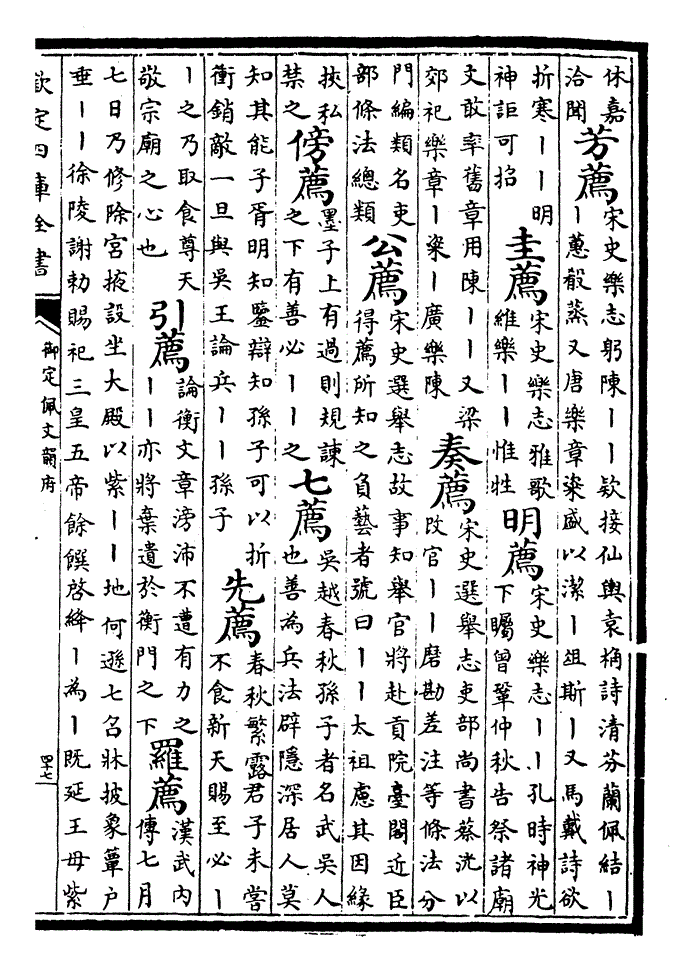 休嘉洽聞芳薦宋史樂志躬陳——欵接仙輿袁桷詩清芬蘭佩結——蕙殽蒸又唐樂章粢盛以潔—俎斯—又馬戴詩欲
折寒——明神詎可招圭薦宋史樂志雅歌維樂——惟牲明薦宋史樂志——孔時神光下矚曾鞏仲秋告祭諸廟
文敢率舊章用陳——又梁郊祀樂章—粢—廣樂陳奏薦宋史選舉志吏部尚書蔡洸以改官——磨勘差注等條法分
門編類名吏部條法總類公薦宋史選舉志故事知舉官將赴貢院臺閣近臣得薦所知之負藝者號曰——太祖慮其因緣
挾私禁之傍薦墨子上有過則規諫之下有善必——之七薦吳越春秋孫子者名武吳人也善為兵法辟隱深居人莫
知其能子胥明知鑒辯知孫子可以折衝銷敵一旦與吳王論兵——孫子先薦春秋繁露君子未嘗不食新天賜至必—
—之乃取食尊天敬宗廟之心也引薦論衡文章滂沛不遭有力之——亦將棄遺於衡門之下羅薦漢武内傳七月
七日乃修除宮掖設坐大殿以紫——地何遜七召牀披象簟户垂——徐陵謝勅賜祀三皇五帝餘饌啓絳—為—既延王母紫
欽定四庫全書
御定佩文韻府
四十七